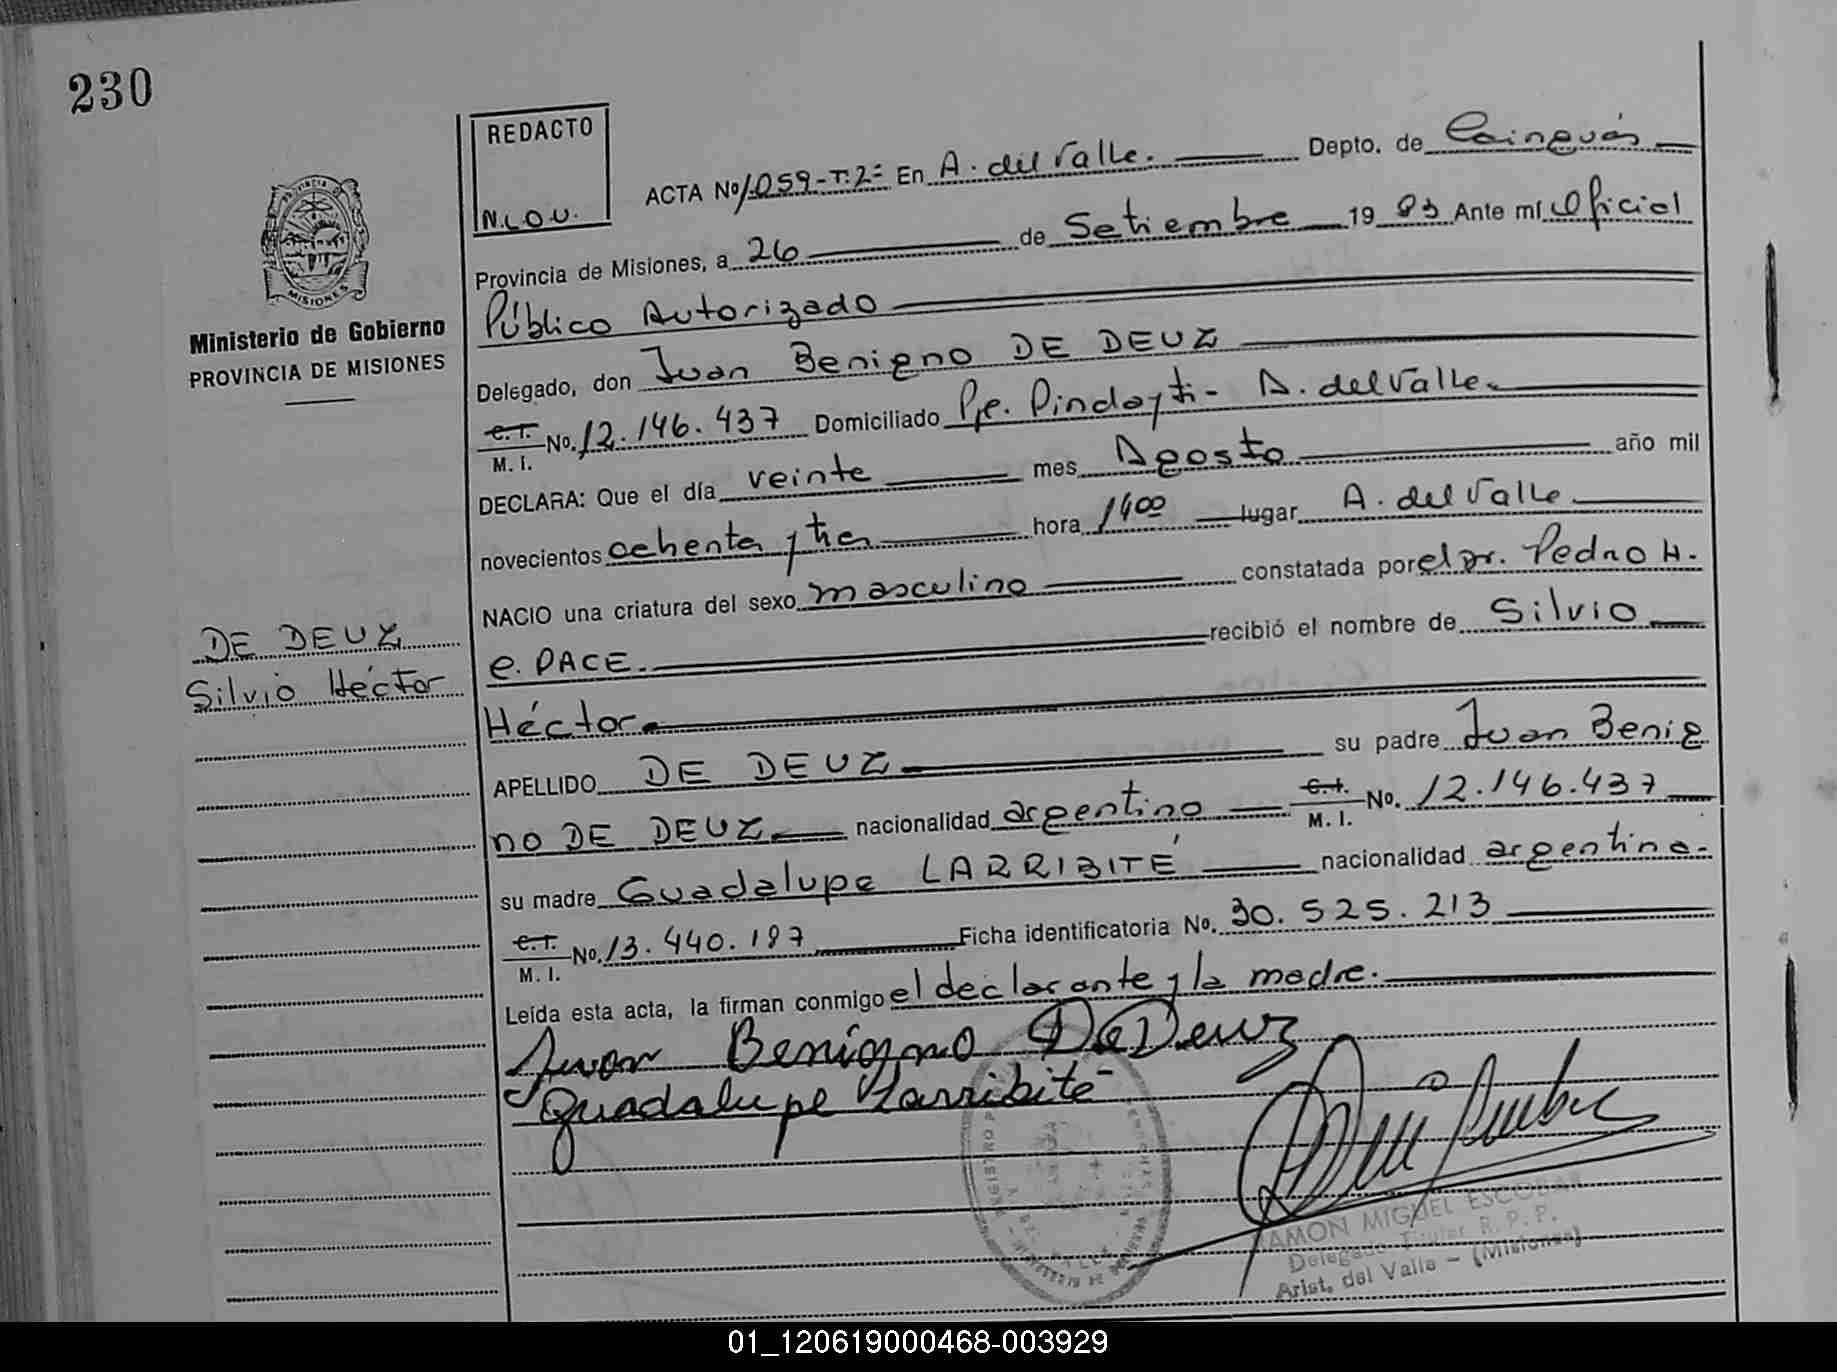 230
REDACTO
N.L.O.U.
ACTA No 1.059-T:2º En A. del Valle. Depto. de Cainguás
Provincia de Misiones, a 26 de Setiembre 1983 Ante mí Oficial
Público Autorizado
Delegado, don Juan Benigno DE DEUZ
C.I. M.I. No. 12.146.437 Domiciliado Pje. Pindayti - A. del Valle.
DECLARA: Que el día veinte mes Agosto año mil
novecientos ochenta y tres hora 1400 lugar A. del Valle.
NACIO una criatura del sexo masculino constatada por el Dr. Pedro H.
e. PACE. recibió el nombre de Silvio
Héctor.
APELLIDO DE DEUZ su padre Juan Benig
no DE DEUZ nacionalidad argentino C.I. M.I. No. 12.146.437
su madre Guadalupe LARRIBITÉ nacionalidad argentina.
C.I. M.I. No. 13.440.197 Ficha identificatoria No. 30.525.213
Leída esta acta, la firman conmigo el declarante y la madre.
Juan Benigno De Deuz
Guadalupe Larribité
PROVINCIA DE
MISIONES
Ministerio de Gobierno
PROVINCIA DE MISIONES
DE DEUZ
Silvio Héctor
RAMON MIGUEL ESCOBAR
Delegado Titular R. P. P.
Arist. del Valle - (Misiones)
01_120619000468-003929